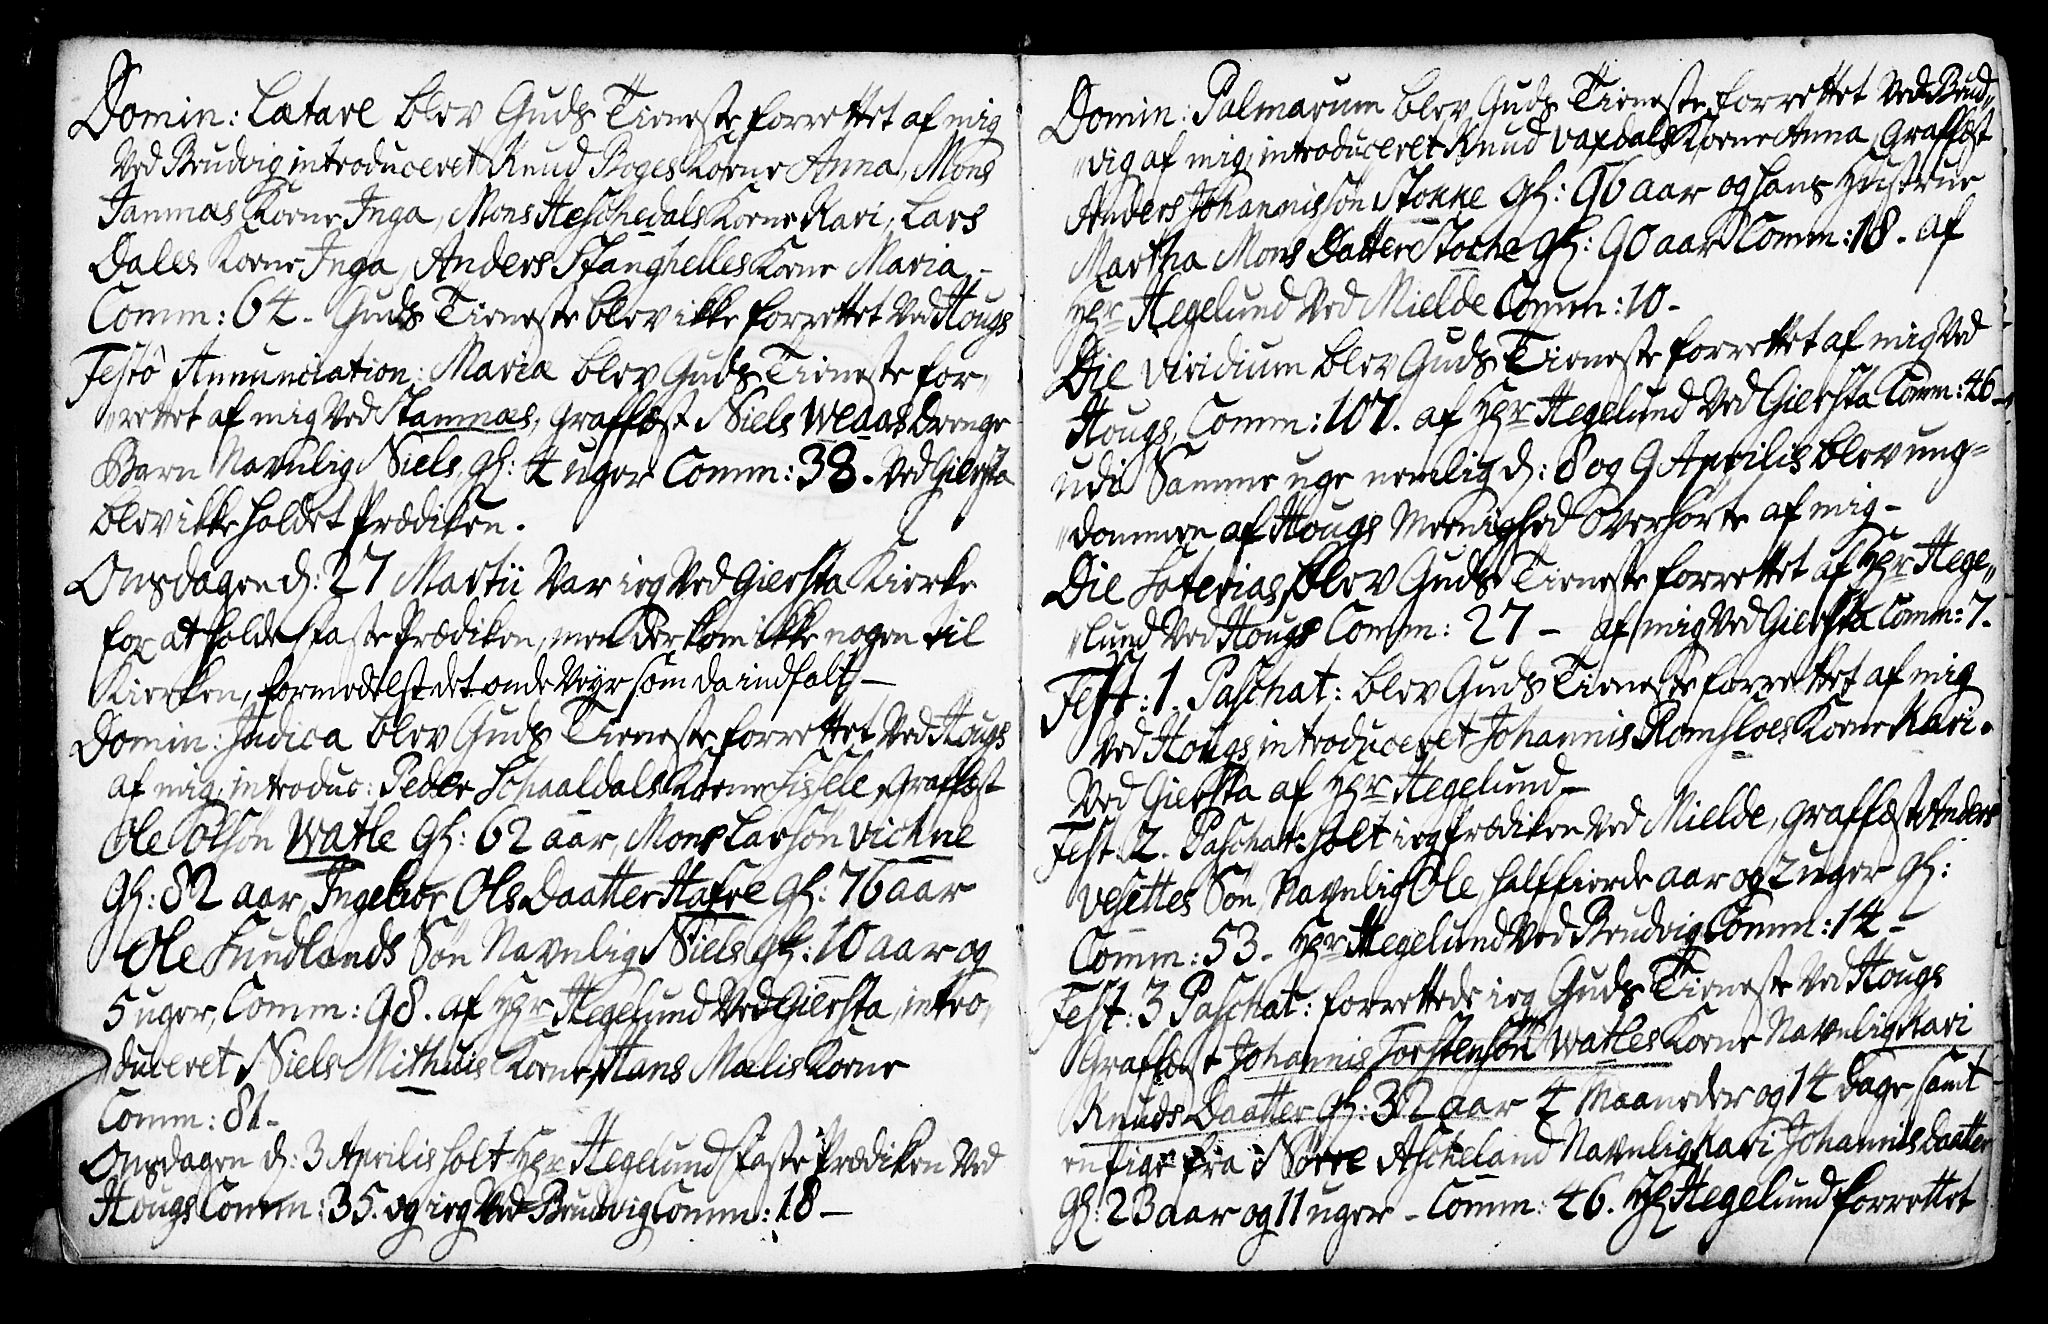 Domin: Lætare blev Guds Tieneste forrettet af mig
Ved Brudvig introduceret Knud Boges Kone Anna, Mons
Janmas Kone Inga, Mons Heschedals Kone Kari, Lars
Dales Kone Inga, Anders Stanghelles Kone Maria –
Comm: 64 – Guds Tieneste blev ikke forrettet Ved Hougs
Festo Annunciation: Mariæ blev Guds Tieneste for„
„rettet af mig Ved Stamnæs, graffæst Niels Weaas Drenge
Barn Navnlig Niels, gl: 4 uger Comm: 38. Ved Giersta
blev ikke holdet Prædiken.
Onsdagen d: 27 Martii Var ieg Ved Giersta Kierke
for at holde faste Prædiken, men der kom ikke nogen til
Kierken, formedelst det onde Veyr som da indfalt –
Domin: Judica blev Guds Tieneste forrettet Ved Hougs
af mig, introduc: Peder Schaaldals Kone Sisele, graffæst
Ole Olsøn Watle gl: 62 aar, Mons Larsøn Vichne
gl: 82 aar Ingebor Ols Daatter Hafre gl: 76 aar
Ole Lundlands Søn Navnlig Niels gl: 10 aar og
5 uger, Comm: 98. af Hr Hegelund Ved Giersta, intro„
„duceret Niels Mithuis Kone, Hans Mælis Kone
Comm: 81 –
Onsdagen d: 3 Aprilis holt Hr Hegelund faste Prædiken Ved
Hougs Comm: 35. og ieg Ved Brudvig Comm: 18 –
Domin: Palmarum blev Guds Tieneste forrettet Ved Brud„
„vig af mig, introduceret Knud Vaxdals Kone Anna, graffæst
Anders Johannissøn Stokke gl: 96 aar og hans Hustrue
Martha Mons Datter Stoche gl: 90 aar Comm: 18. af
Hr Hegelund Ved Mielde Comm: 10 –
Die Viridium blev Guds Tieneste forrettet af mig Ved
Hougs, Comm: 107. af Hr Hegelund Ved Giersta Comm: 46 –
udi Samme uge nemlig d: 8 og 9 Aprilis blev ung=
„dommen af Hougs Meenighed Overhørte af mig –
Die Soterias blev Guds Tieneste forrettet af Hr Hege„
„lund Ved Hougs Comm: 27 – af mig Ved Giersta Comm: 7.
Fest: 1. Paschat: blev Guds Tieneste forrettet af mig
Ved Hougs introduceret Johannis Romsloes Kone Kari.
Ved Giersta af Hr Hegelund –
Fest. 2. Paschat: holt ieg Prædiken Ved Mielde, graffæst Anders
Vesettes Søn, Navnlig Ole halffierde aar og 2 uger gl:
Comm: 53 – Hr Hegelund Ved Brudvig Comm: 14 –
Fest: 3 Paschat: forrettede ieg Guds Tieneste Ved Hougs
Graffæst Johannis Torstensøn Watles Kone Navnlig Kari
Knuds Daatter gl: 32 aar 4 Maaneder og 14 dage samt
en Pige fra Nørre Ascheland Navnlig Kari Johannis Daatter
gl: 23 aar og 11 uger – Comm: 46. Hr Hegelund forrettet